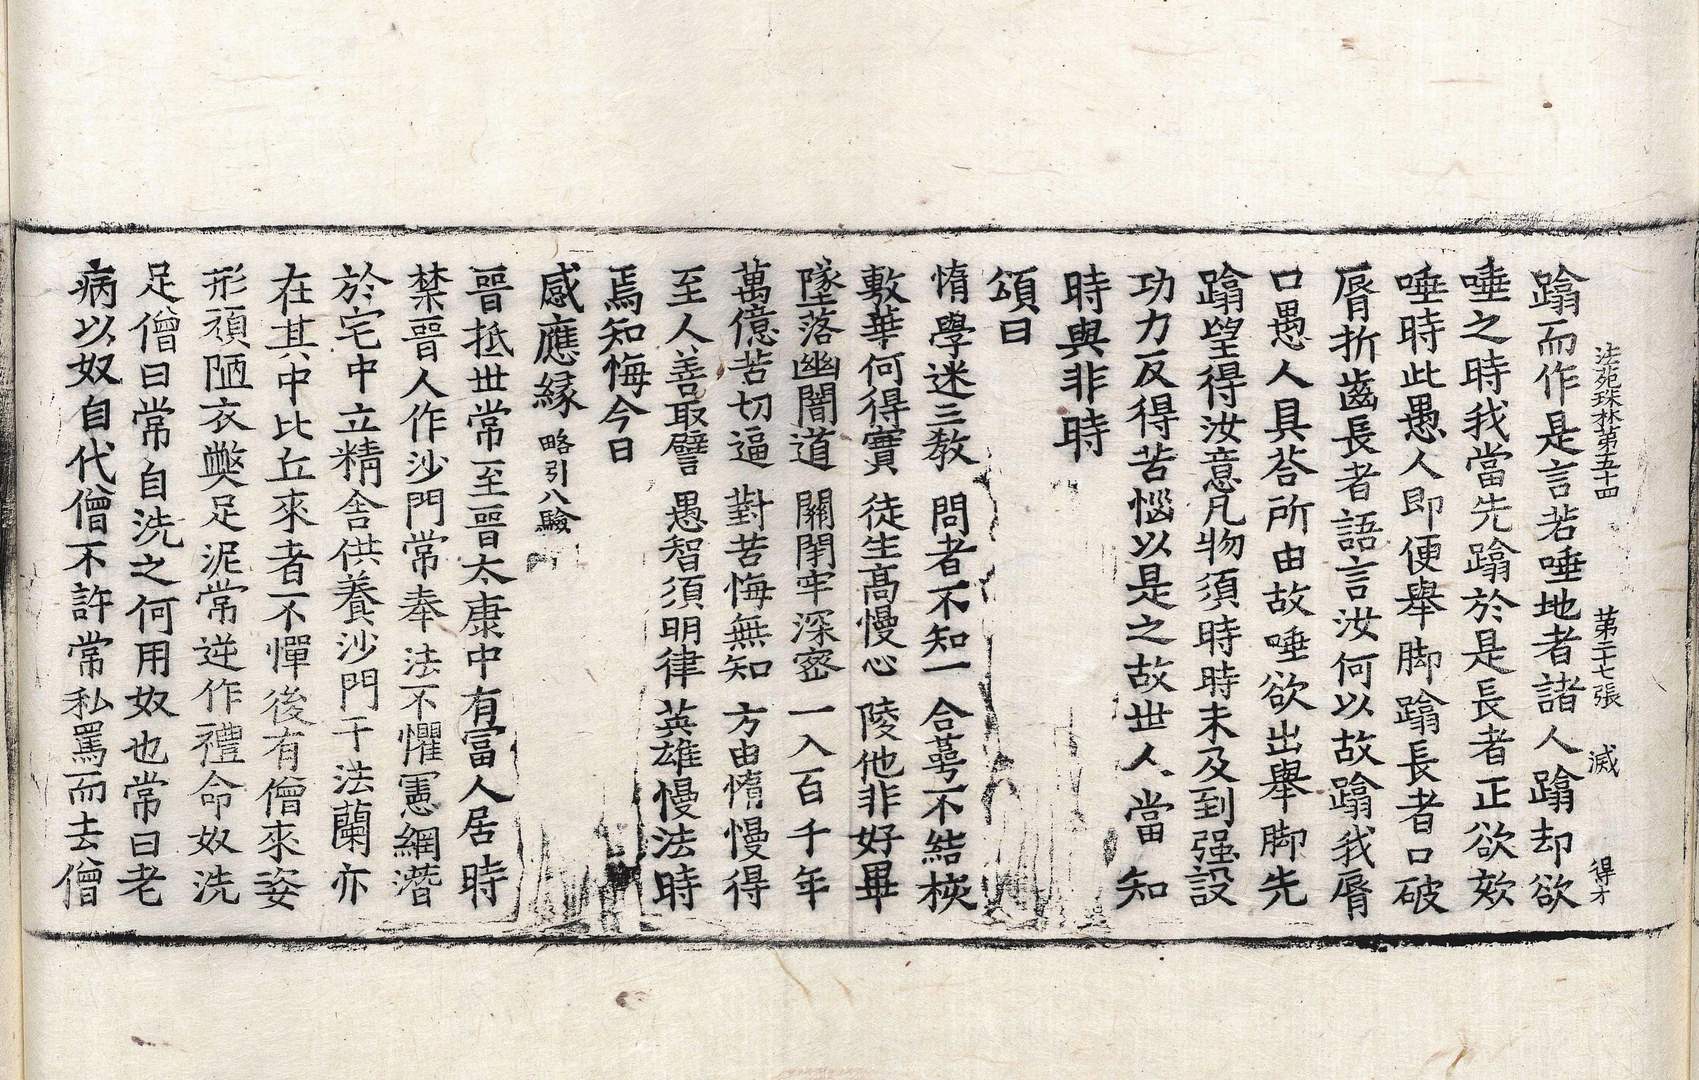 法苑珠林第五十四 第二十七張 滅 得才
蹹而作是言若唾地者諸人蹹却欲
唾之時我當先蹹於是長者正欲欬
唾時此愚人即便舉脚蹹長者口破
脣折齒長者語言汝何以故蹹我脣
口愚人具荅所由故唾欲出舉脚先
蹹望得汝意凡物須時時未及到强設
功力反得苦惱以是之故世人當知
時與非時
頌曰
惰學迷三敎 問者不知一 合萼不結核
敷華何得實 徒生高慢心 陵他非好畢
墜落幽闇道 關閉牢深密 一入百千年
萬億苦切逼 對苦悔無知 方由惰慢得
至人善取譬 愚智須明律 英雄慢法時
焉知悔今日
感應緣 略引八驗
晉抵世常一至晋太康中有富人居時
禁晉人作沙門常奉法不懼憲網潛
於宅中立精舍供養沙門于法蘭亦
在其中比丘來者不憚後有僧來姿
形頑陋衣獘足泥常逆作禮命奴洗
足僧曰常自洗之何用奴也常曰老
病以奴自代僧不許常私罵而去僧